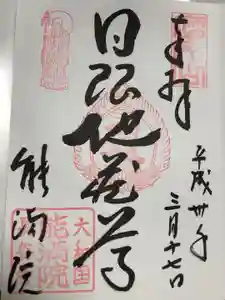 奉拝
平成卅年
三月十七日
日限地蔵尊
能満院
大和国
能満院